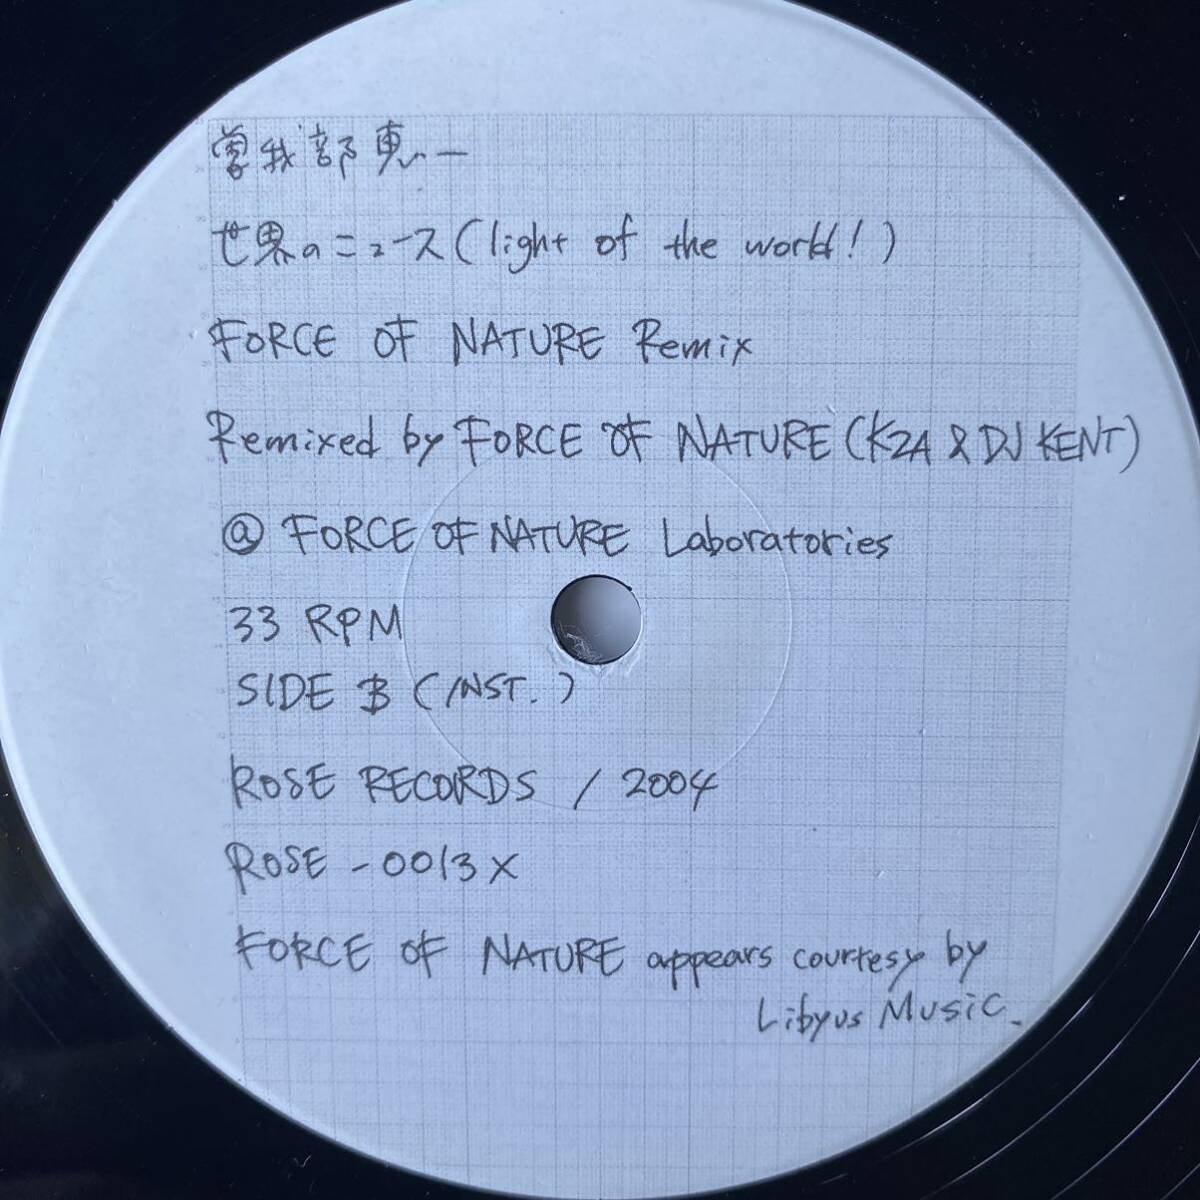 曽我部恵一
世界のニュース(light of the world!)
FORCE OF NATURE Remix
Remixed by FORCE OF NATURE (KZA & DJ KENT)
@ FORCE OF NATURE Laboratories
33 RPM
SIDE B (INST.)
ROSE RECORDS / 2004
ROSE - 0013X
FORCE OF NATURE appears courtesy by
Libyus Music.